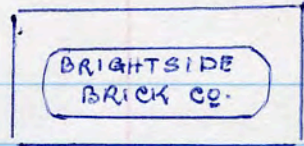 BRIGHTSIDE
BRICK CO.